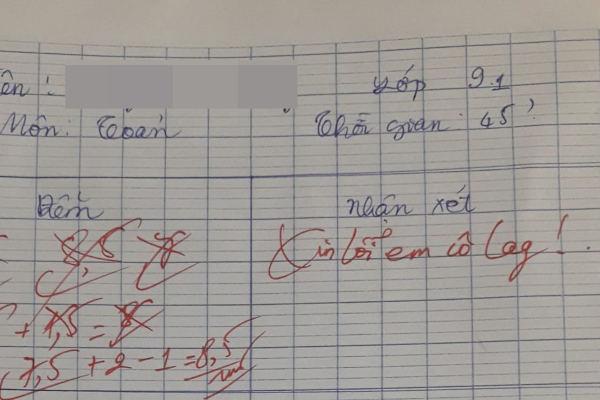 ên: Lớp 9.1
Môn: Toán Thời gian: 45'
Điểm nhận xét
8,5 8 Xin lỗi em cô lag!
+ 7,5 = 8
7,5 + 2 - 1 = 8,5